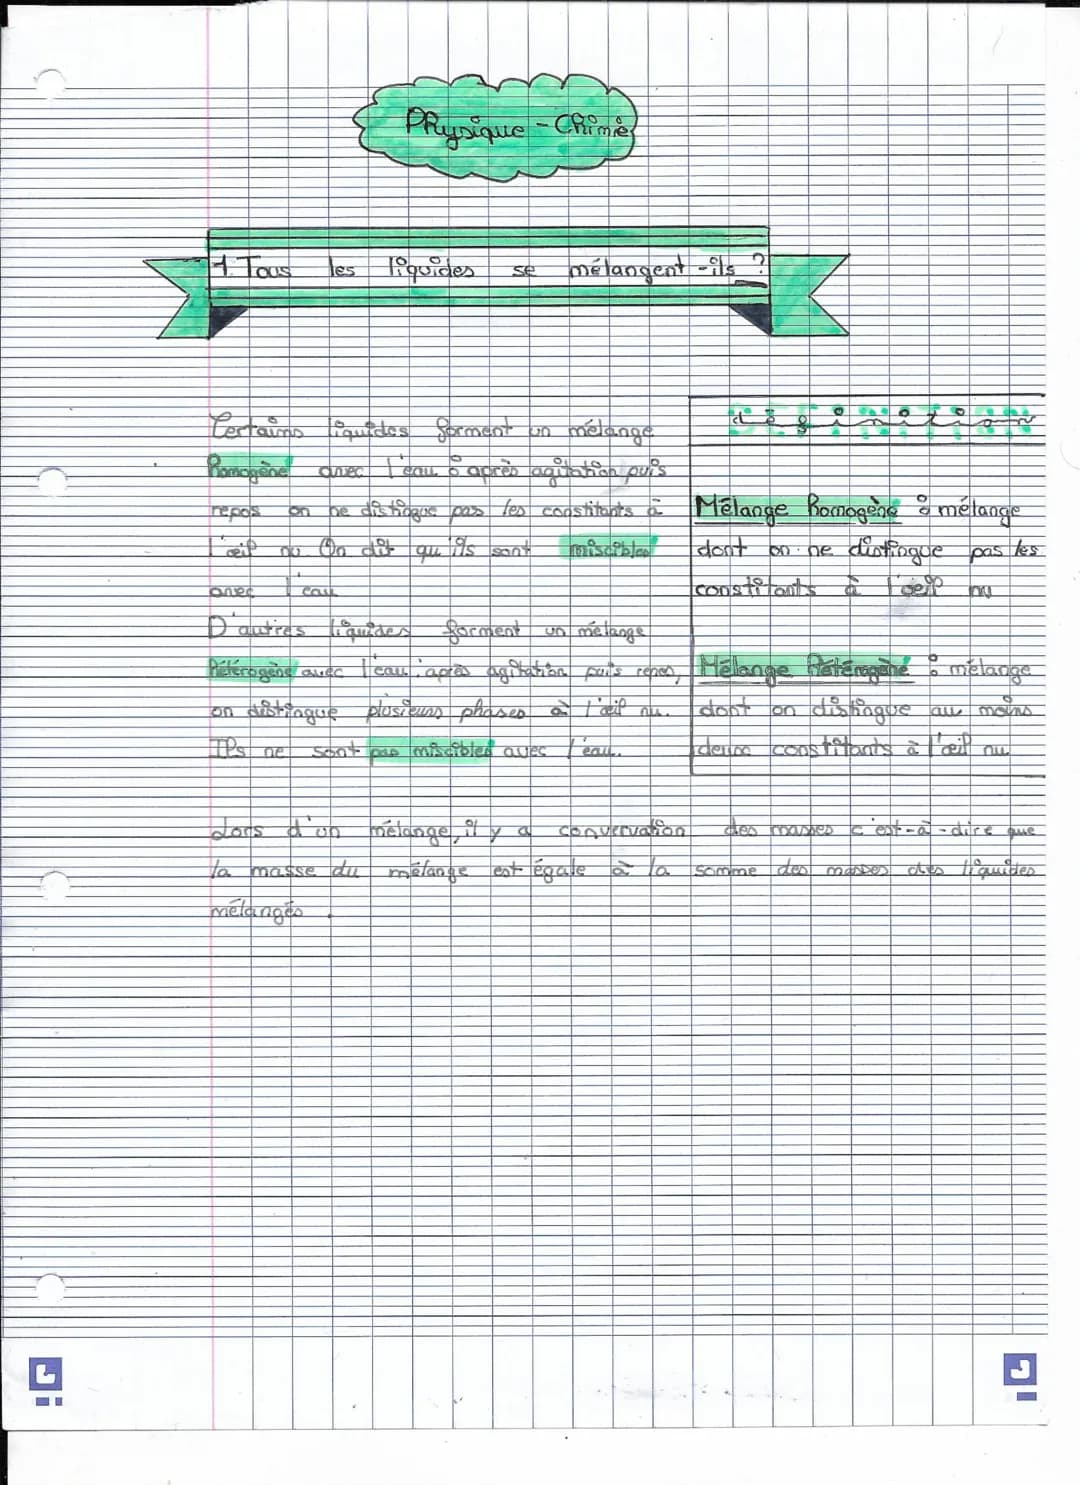 Physique - Chimie
1. Tous les liquides se mélangent-ils ?
Certains liquides forment un mélange
homogène avec l'eau : après agitation puis
repos on ne distingue pas les constitants à
l'œil nu. On dit qu'ils sont miscibles
avec l'eau
D'autres liquides forment un mélange
hétérogène avec l'eau : après agitation puis repos,
on distingue plusieurs phases à l'œil nu.
Ils ne sont pas miscibles avec l'eau.
définition
Mélange homogène : mélange
dont on ne distingue pas les
constitants à l'œil nu
Mélange hétérogène : mélange
dont on distingue au moins
deux constitants à l'œil nu
Lors d'un mélange, il y a convervation des masses c'est-à-dire que
la masse du mélange est égale à la somme des masses des liquides
mélangés.